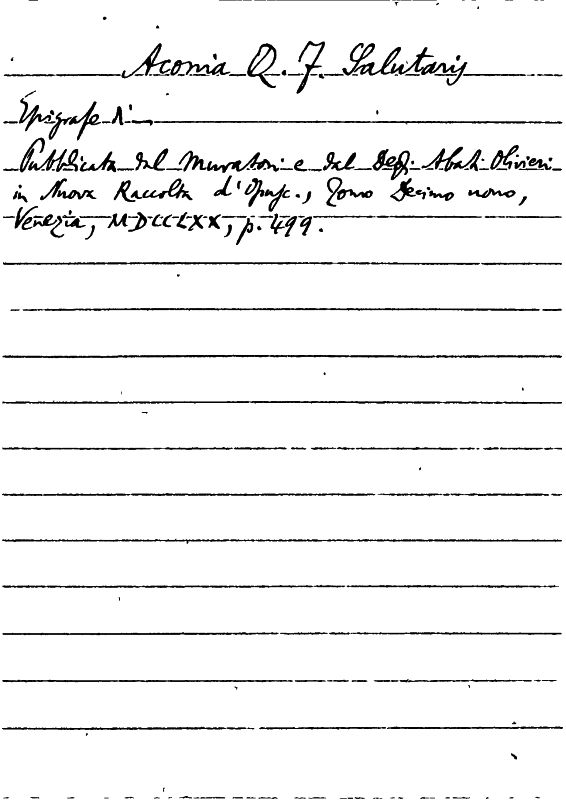 Aconia Q. F. Salutaris
Epigrafe di —
Pubblicata dal Muratori e dal Degli Abati Olivieri
in Nuova Raccolta d'Opusc., Tomo Decimo nono,
Venezia, MDCCLXX, p. 499.